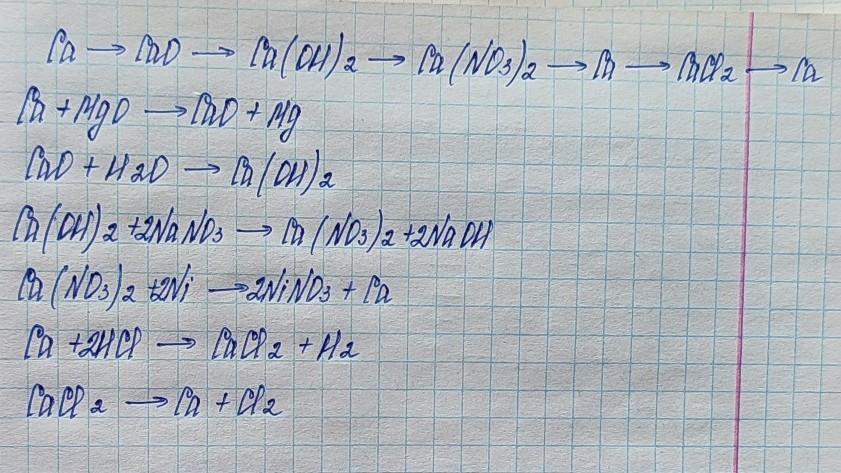 Ca → CaO → Ca(OH)2 → Ca(NO3)2 → Ca → CaCl2 → Ca
Ca + MgO → CaO + Mg
CaO + H2O → Ca(OH)2
Ca(OH)2 + 2NaNO3 → Ca(NO3)2 + 2NaOH
Ca(NO3)2 + 2Ni → 2NiNO3 + Ca
Ca + 2HCl → CaCl2 + H2
CaCl2 → Ca + Cl2